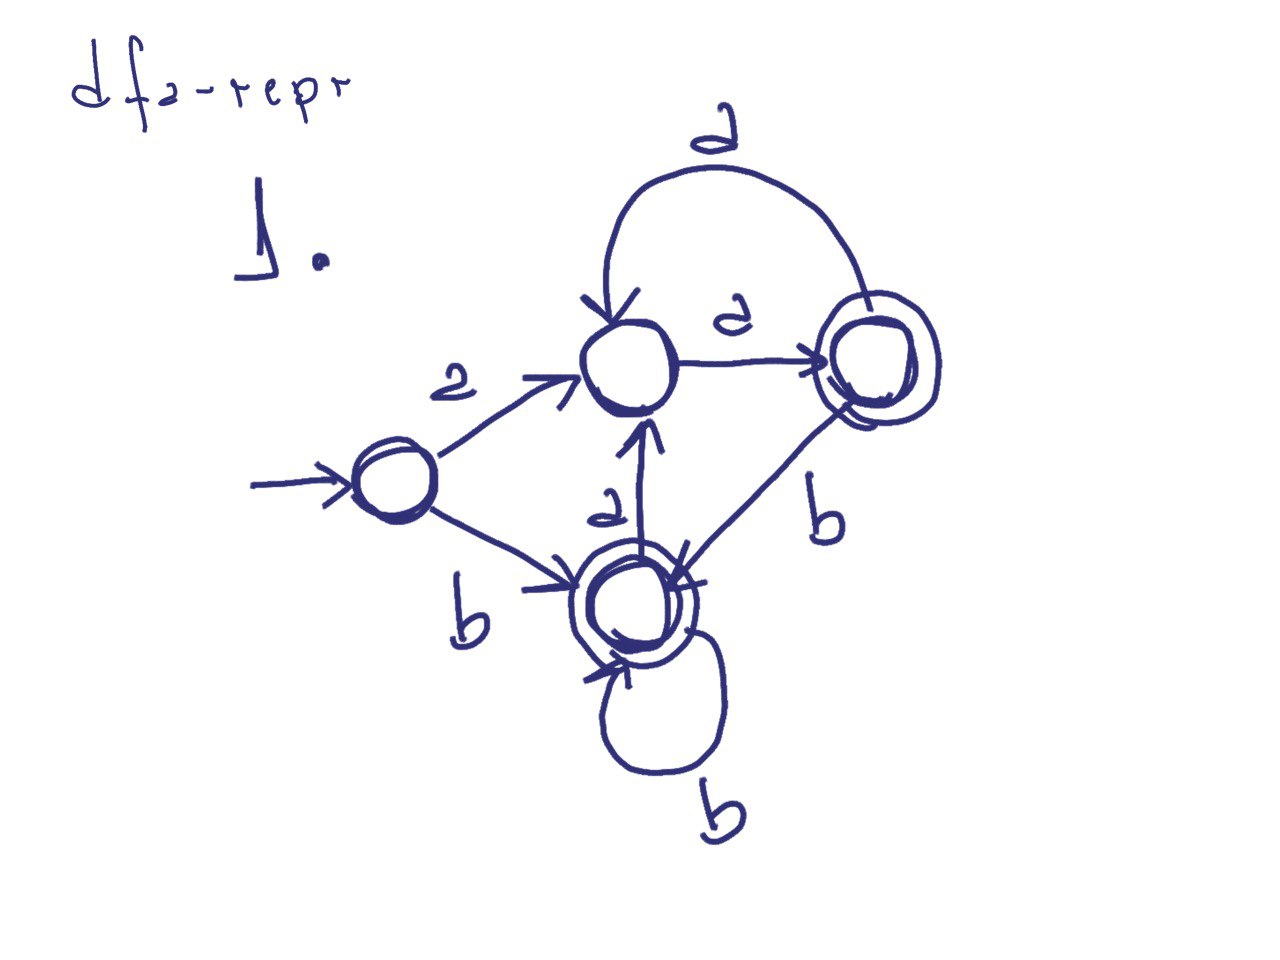 dfa-repr
1.
a
a
a
a
b
b
b